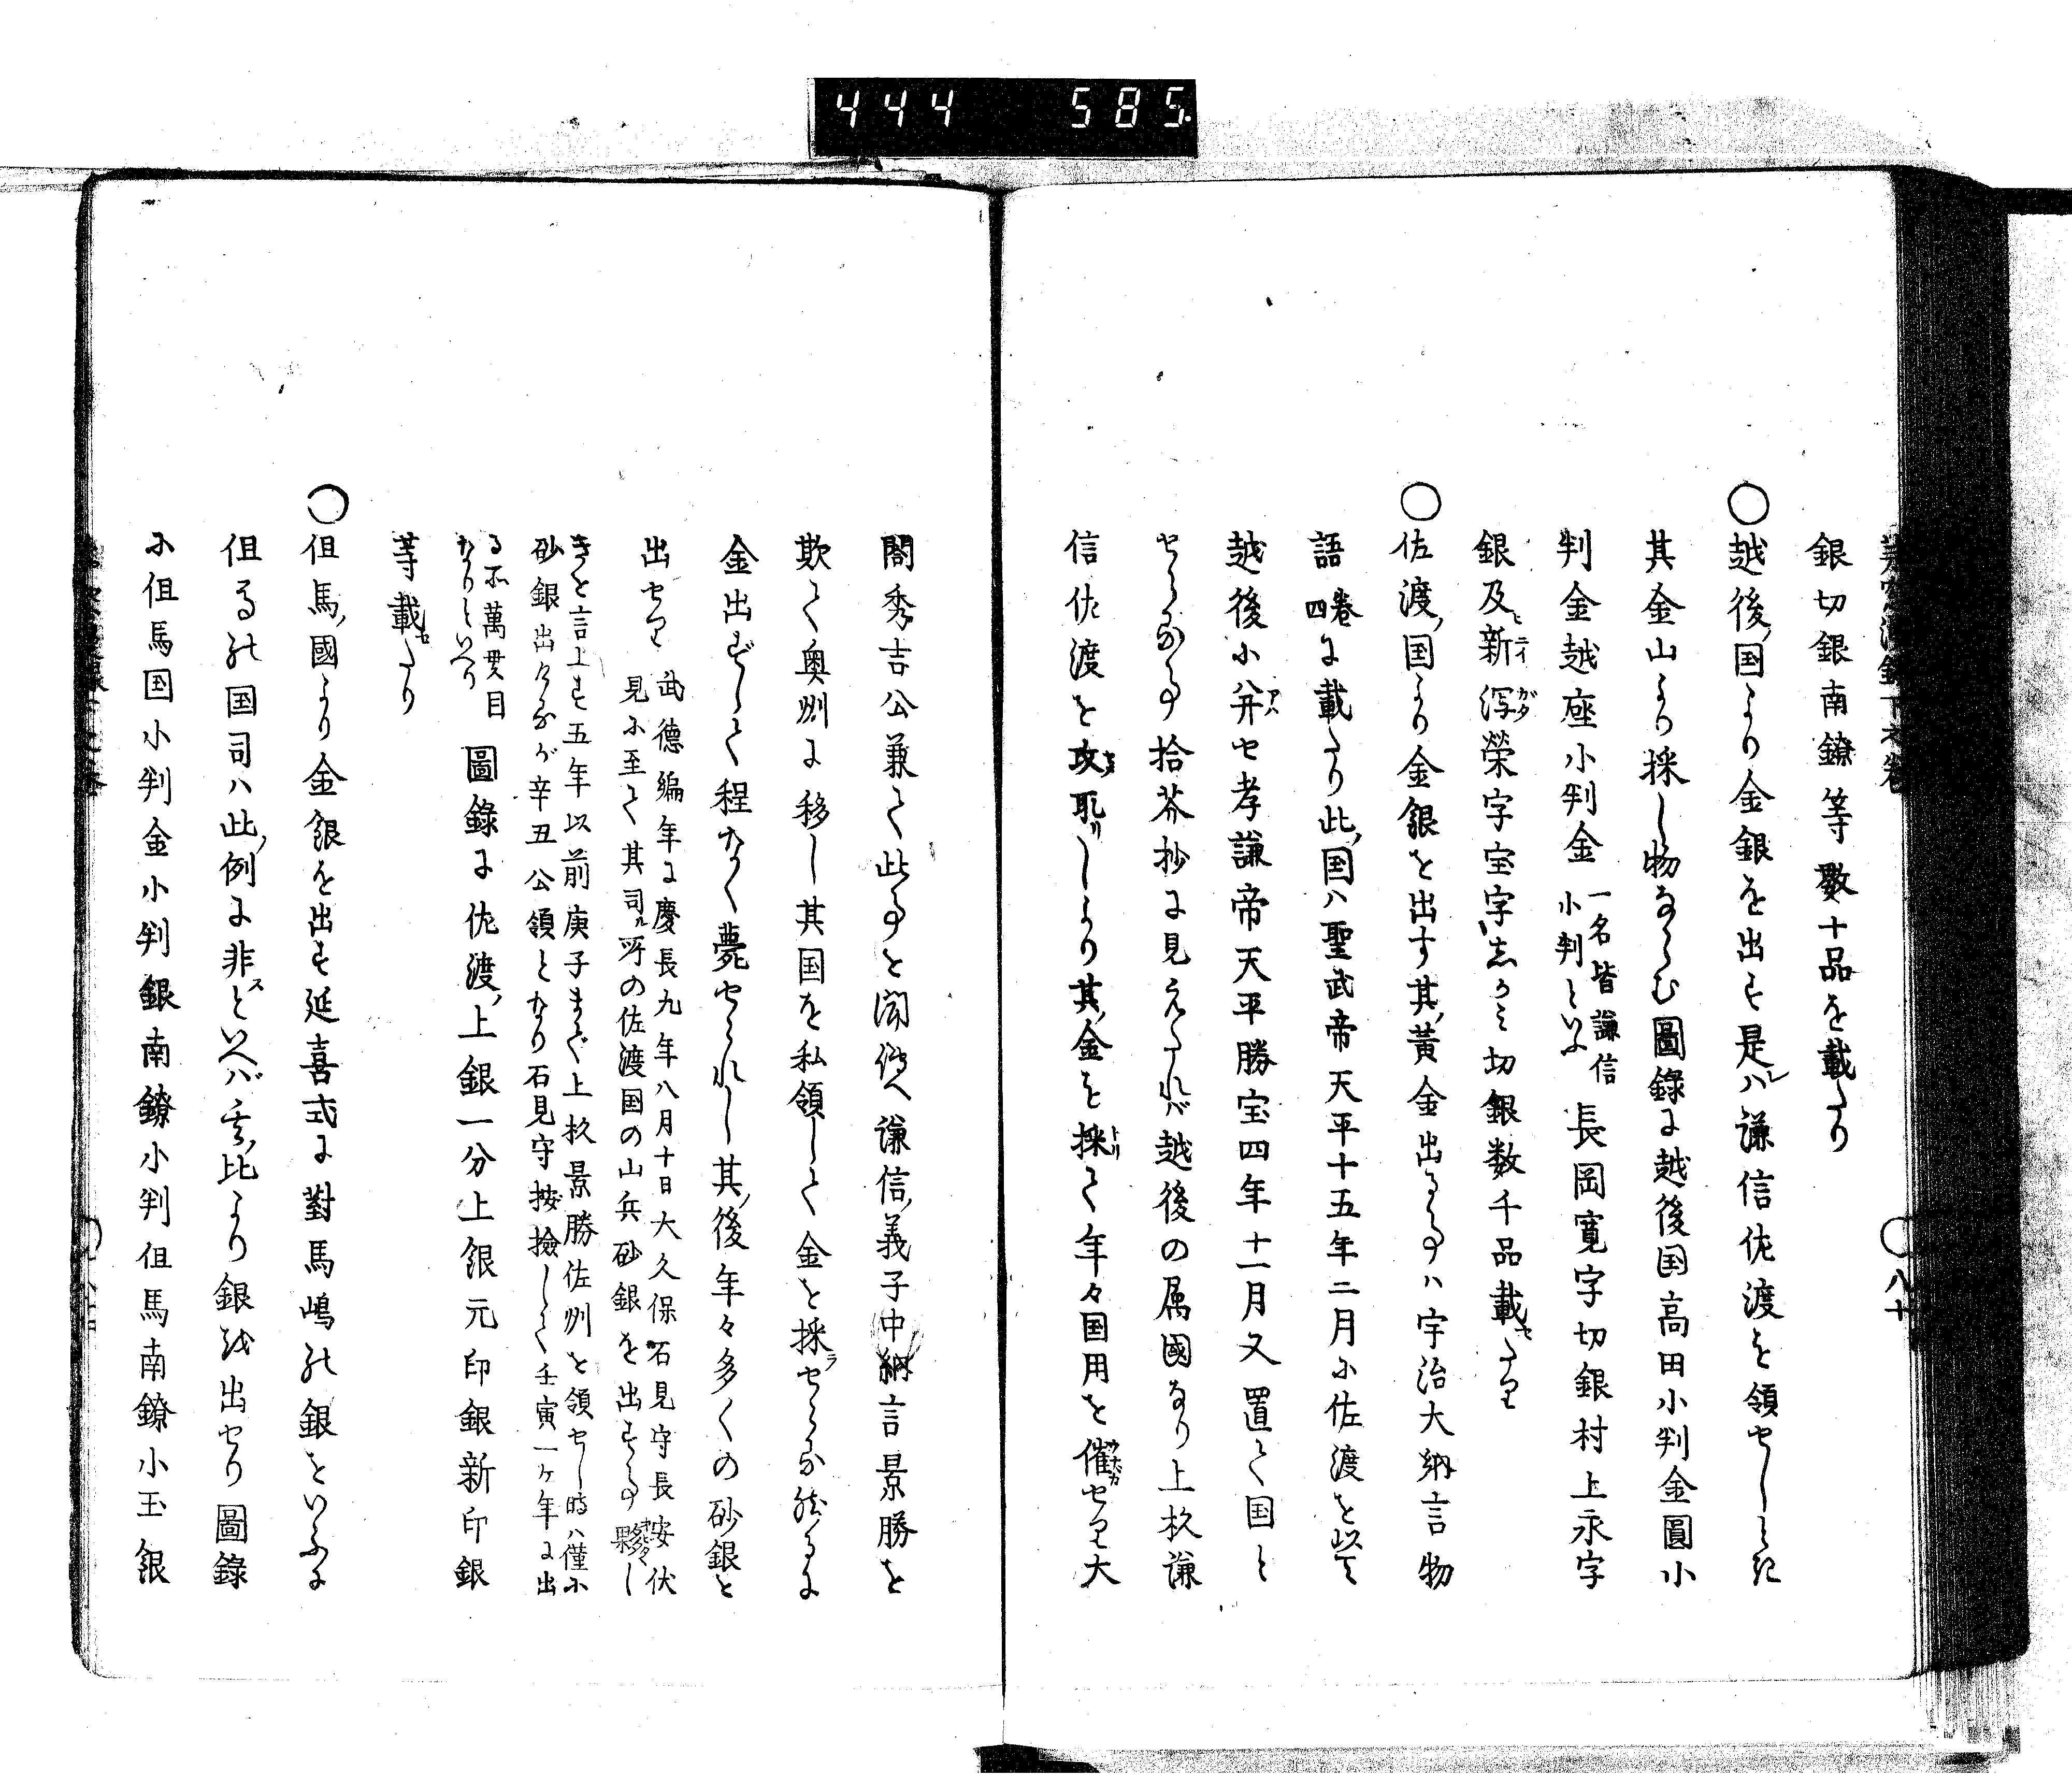 444 585
銀切銀南鐐等數十品を載たり
○越後ノ国より金銀を出す是レハ謙信佐渡を領せしとき
其金山より採し物ならむ圖錄に越後国高田小判金圓小
判金越座小判金一名皆謙信小判といふ長岡寛字切銀村上永字
銀及ヒ新潟榮字宝字
切銀数千品載セたり
○佐渡ノ国より金銀を出す其ノ黄金出る事ハ宇治大納言物
語四卷に載たり此ノ国ハ聖武帝天平十五年二月に佐渡を以て
越後に并アハせ孝謙帝天平勝宝四年十一月又置て国と
せらる事拾芥抄に見えたれバ越後の属國なり上杦謙
信佐渡を攻取リしより其ノ金を採トリて年々国用を催せり大
閤秀吉公兼て此事を聞傳へ謙信ノ義子中納言景勝を
欺て奥州に移し其国を私領して金を採ラせらる然るに
金出ずして程なく薨せられし其ノ後年々多くの砂銀を
出せり武德編年に慶長九年八月十日大久保石見守長安伏
見に至て其司ル所の佐渡国の山兵砂銀を出す事夥し
きを言上す五年以前庚子まで上杦景勝佐州を領せし時ハ僅に
砂銀出タるが辛丑公領となり石見守按撿して壬寅一ケ年に出
る所萬貫目
なりといへり圖錄に佐渡ノ上銀一分上銀元印銀新印銀
等載セたり
○但馬ノ國より金銀を出す延喜式に對馬嶋の銀をいふに
但馬の国司ハ此ノ例に非ズといへバ
比より銀を出せり圖錄
に但馬国小判金小判銀南鐐小判但馬南鐐小玉銀
八十